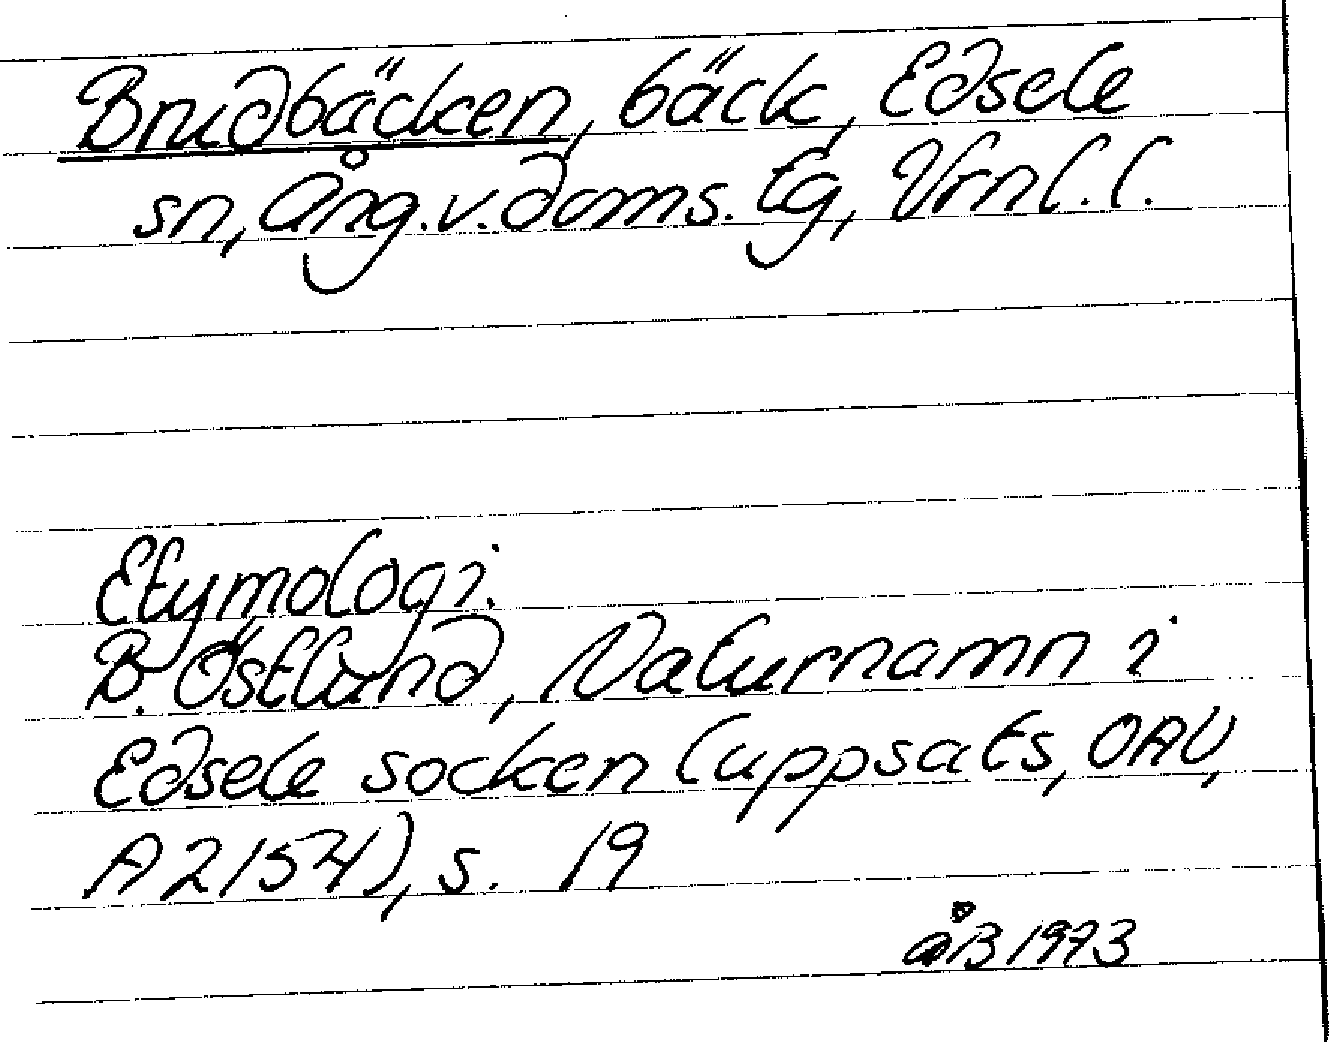 Brudbäcken, bäck, Edsele
sn, Ång. v. doms. tg, Vrnl. l.
Etymologi.
B. Östlund, Naturnamn i
Edsele socken (uppsats, OAU,
A 2154), s. 19
åB 1973